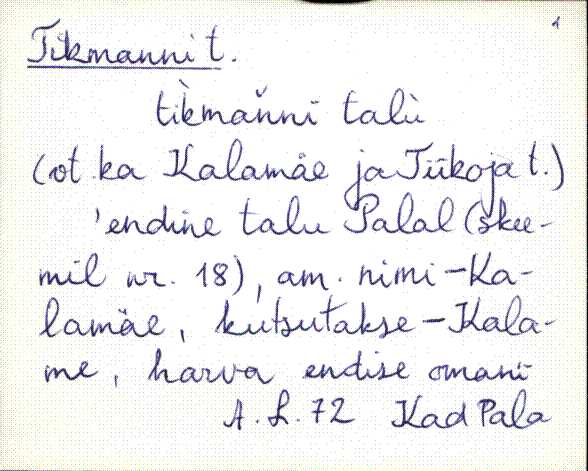 1
Tikmanni t.
tìkmăn̆nī talù
(vt. ka Kalamäe ja Tiikoja t.)
'endine talu Palal (skee-
mil nr. 18), am. nimi – Ka-
lamäe, kutsutakse – Kala-
me, harva endise omani
A. L. 72 Kad Pala